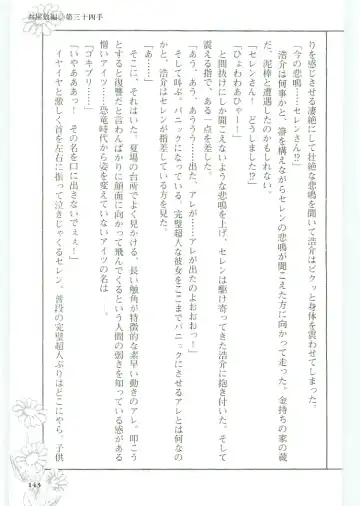 お屋敷編◎第三十四手
りを感じさせる凄絶にして壮絶な悲鳴を聞いて浩介はビクッと身体を震わせてしまった。
「今の悲鳴……セレンさん!?」
浩介は何事かと、箒を構えながらセレンの悲鳴が聞こえた方に向かって走った。金持ちの家の蔵
だ、泥棒と遭遇したのかもしれない。
「セレンさん！　どうしました!?」
「ひょわわあひゃー！」
と間抜けにしか聞こえないような悲鳴を上げ、セレンは駆け寄ってきた浩介に抱き付いた。そして
震える指で、ある一点を差した。
「あう、あう、あううう……出た、アレが……アレが出たのよおおおっ！」
そして叫ぶ。パニックになっている。完璧超人な彼女をここまでパニックにさせるアレとは何なの
かと、浩介はセレンが指差している方を見た。
「あ……」
そこに、それはいた。夏場の台所でよく見かける、長い触角が特徴的な素早い動きのアレ。叩こう
とすると復讐だと言わんばかりに顔面に向かって飛んでくるという人間の弱さを知っている感がある
憎いアイツ……恐竜時代から姿を変えていないアイツの名は――。
「ゴキブリ……」
「いやああああっ！　その名を口に出さないでぇぇ！」
イヤイヤと激しく首を左右に振って泣きじゃくるセレン。普段の完璧超人ぶりはどこにやら、子供
145